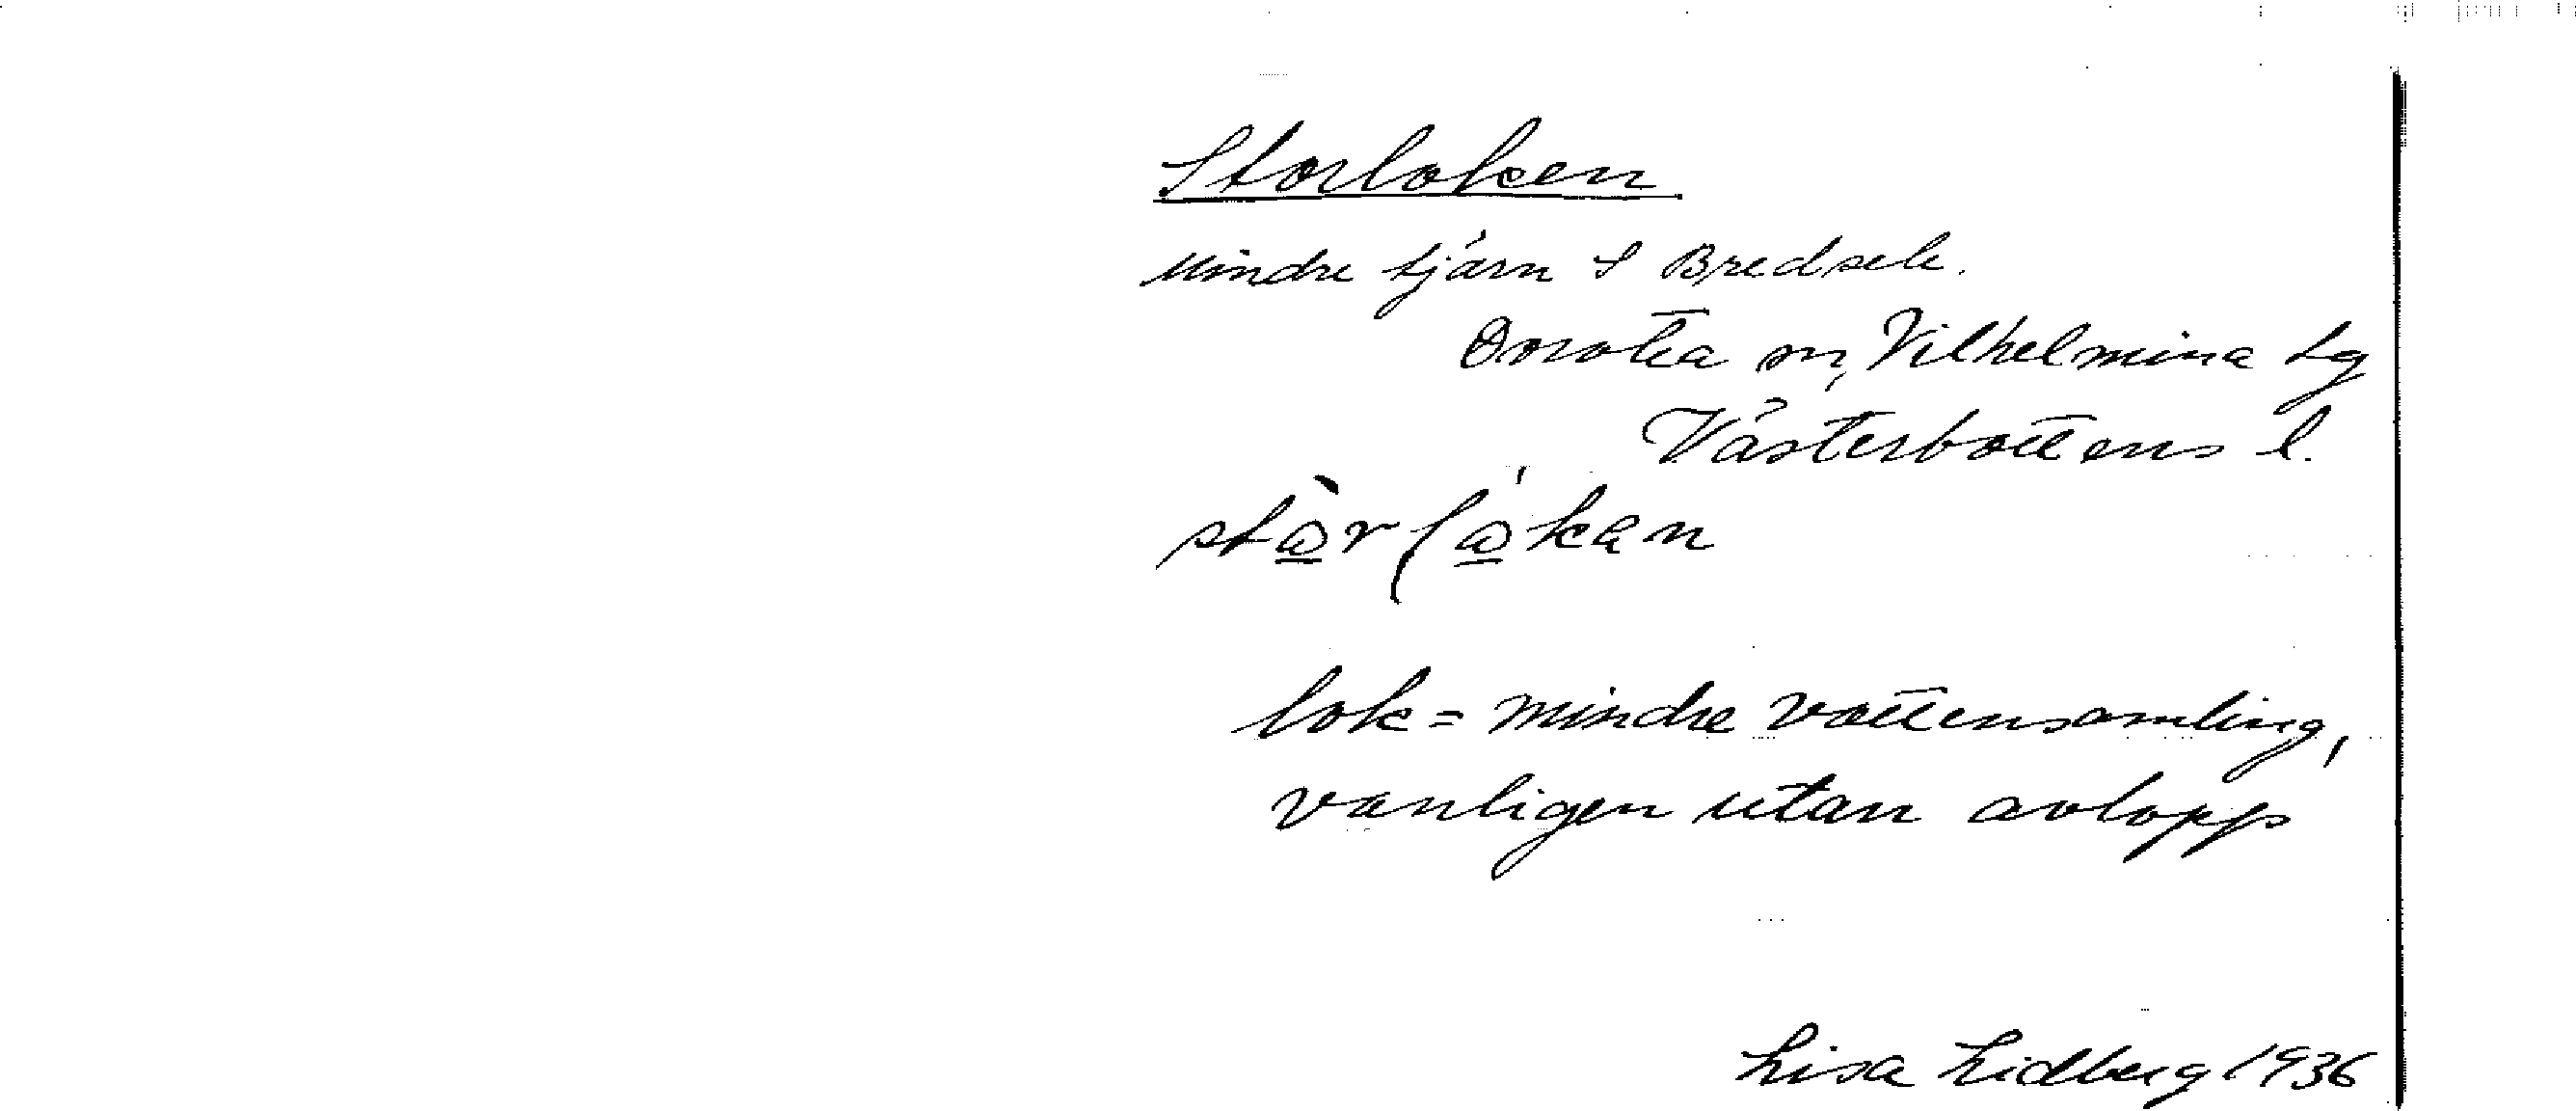 Storloken
Mindre tjärn S Bredsele.
Dorotea sn, Vilhelmina tg
Västerbottens l.
lok = mindre vattensamling,
vanligen utan avlopp
Lisa Lidberg 1936